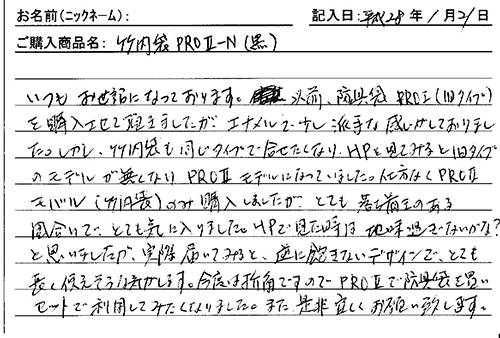 お名前(ニックネーム):
記入日:平成28年 1月21日
ご購入商品名:竹刀袋 PROⅡ-N (黒)
いつも お世話になっております。 以前、防具袋 PROⅠ(旧タイプ)
を購入させて頂きましたが、エナメルで少し派手な感じがしておりまし
た。しかし、竹刀袋も同じタイプで合せたくなり、HPを見てみると旧タイプ
のモデルが無くなり PROⅡモデルになっていました。仕方なく PROⅡ
モデル (竹刀袋)のみ購入しましたが、とても 落ち着きのある
風合いで、とても気に入りました。HPで見た時は 地味過ぎないかな?
と思いましたが、実際届いてみると、逆に飽きないデザインで、とても
長く使えそうな気がします。今度は折角ですので PROⅡで防具袋を買い
セットで利用してみたくなりました。また 是非 宜しく お願い致します。